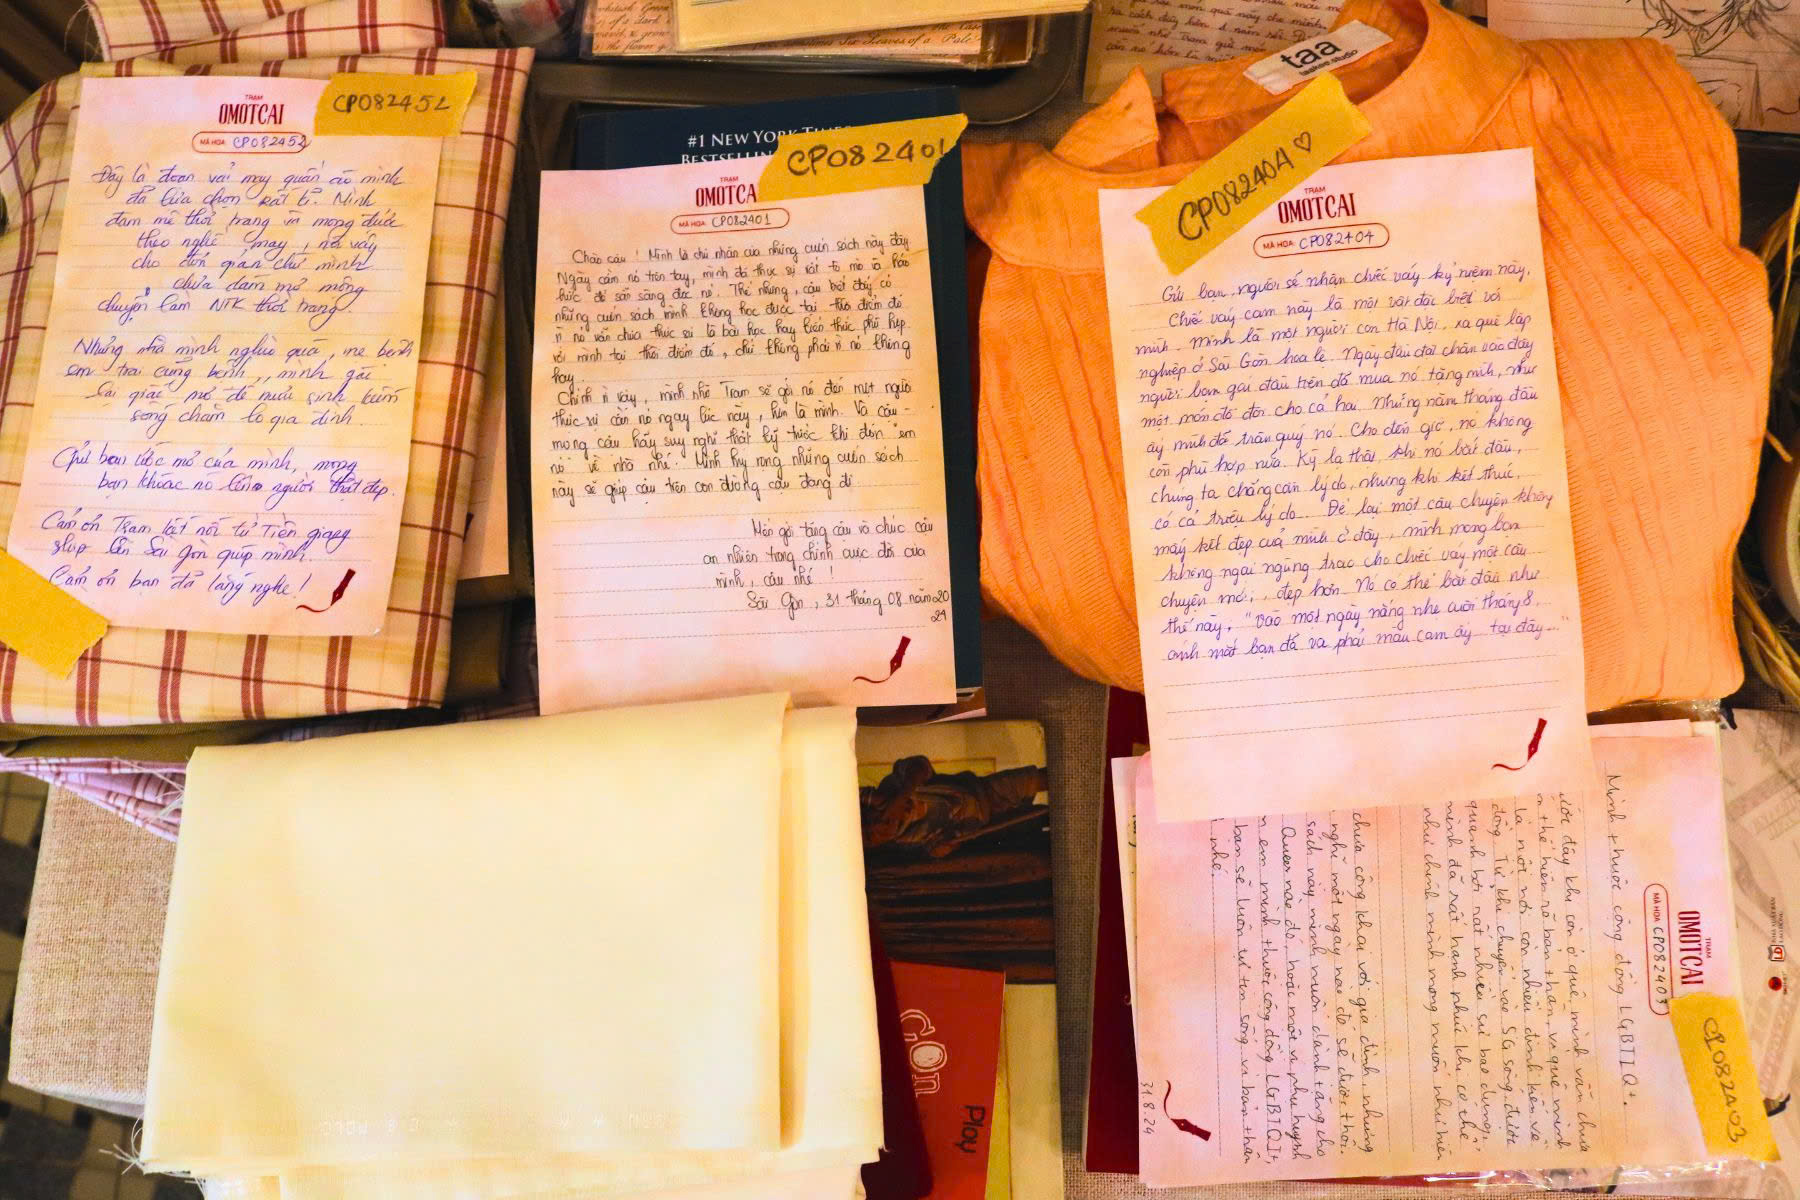 TRẠM
OMOTCAI
MÃ HOA CP082452
CP082452
Đây là đoạn vải may quần áo mình
đã lựa chọn rất kĩ. Mình
đam mê thời trang và mong được
theo nghề may, nói vậy
cho đơn giản chứ mình
chưa dám mơ mộng
chuyện làm NTK thời trang.
Nhưng nhà mình nghèo quá, mẹ bệnh
em trai cũng bệnh, mình gác
lại giấc mơ để mưu sinh kiếm
sống chăm lo gia đình.
Gửi bạn ước mơ của mình, mong
bạn khoác nó lên người thật đẹp.
Cám ơn Trạm kết nối từ Tiền giang
ship lên Sài gòn giúp mình.
Cảm ơn bạn đã lắng nghe!
#1 NEW YORK TIMES
BESTSELLIN
CP082401
TRẠM
OMOTCA
MÃ HOA CP082401
Chào cậu! Mình là chủ nhân của những cuốn sách này đây
Ngày cầm nó trên tay, mình đã thực sự rất tò mò và háo
hức để sẵn sàng đọc nó. Thế nhưng, cậu biết đấy có
những cuốn sách mình không học được tại thời điểm đó
vì nó vẫn chưa thực sự là bài học hay kiến thức phù hợp
với mình tại thời điểm đó, chứ không phải vì nó không
hay.
Chính vì vậy, mình nhờ Trạm sẽ gửi nó đến một người
thực sự cần nó ngay lúc này, hơn là mình. Và cậu -
mong cậu hãy suy nghĩ thật kỹ trước khi đón "em
nó" về nhà nhé! Mình hy vọng những cuốn sách
này sẽ giúp cậu trên con đường cậu đang đi.
Mến gửi tặng cậu và chúc cậu
an nhiên trong chính cuộc đời của
mình, cậu nhé!
Sài Gòn, 31 tháng 08 năm 20
24
taa
CP082404 ♡
TRẠM
OMOTCAI
MÃ HOA CP082404
Gửi bạn, người sẽ nhận chiếc váy kỷ niệm này,
Chiếc váy cam này là một vật đặc biệt với
mình. Mình là một người con Hà Nội, xa quê lập
nghiệp ở Sài Gòn hoa lệ. Ngày đầu đặt chân vào đây
người bạn gái đầu tiên đã mua nó tặng mình, như
một món đồ đôi cho cả hai. Những năm tháng đầu
ấy mình đã trân quý nó. Cho đến giờ, nó không
còn phù hợp nữa. Kỳ lạ thật, khi nó bắt đầu,
chúng ta chẳng cần lý do, nhưng khi kết thúc,
có cả triệu lý do. Để lại một câu chuyện không
mấy kết đẹp của mình ở đây, mình mong bạn
không ngại ngùng trao cho chiếc váy một câu
chuyện mới, đẹp hơn. Nó có thể bắt đầu như
thế này, "vào một ngày nắng nhẹ cuối tháng 8,
ánh mắt bạn đã va phải màu cam ấy tại đây..."
TRẠM
OMOTCAI
MÃ HOA CP082403
CP082403
Mình thuộc cộng đồng LGBTIQ+.
ước đây khi còn ở quê, mình vẫn chưa
thể hiện rõ bản thân, vì quê mình
là nơi còn nhiều định kiến về
đồng. Từ khi chuyển vào SG sống, được
quanh bởi rất nhiều sự bao dung,
mình đã rất hạnh phúc khi có thể
như chính mình mong muốn. Như hiện
chưa công khai với gia đình, nhưng
nghĩ một ngày nào đó sẽ được thôi.
sách này mình muốn dành tặng cho
Queer nào đó, hoặc một vị phụ huynh
em mình thuộc cộng đồng LGBTIQ+,
bạn sẽ luôn tự tin sống vì bản thân
nhé.
31.8.24
GON
Play